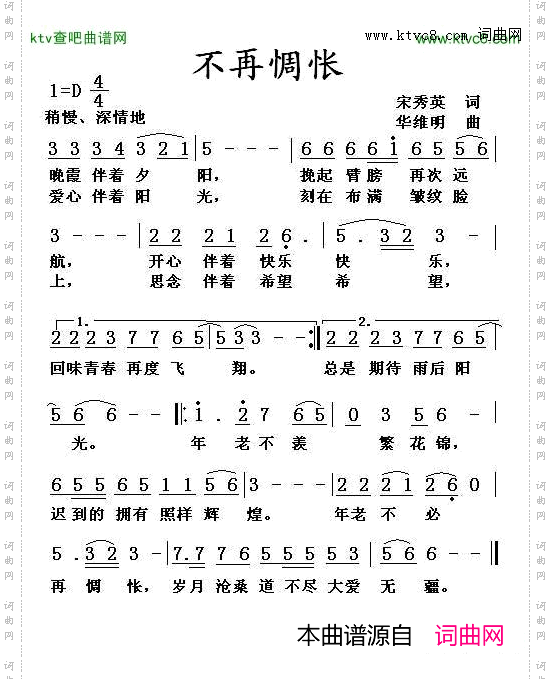 ktv查吧曲谱网
www.ktvc8.com 词曲网
www.ktvc8.com
不再惆怅
1=D 4/4
宋秀英 词
稍慢、深情地
华维明 曲
3 3 3 4 3 2 1 5 - - - 6 6 6 6 i 6 5 5 6
晚霞 伴着 夕 阳， 挽起 臂 膀 再次 远
爱心 伴着 阳 光， 刻在 布 满 皱纹 脸
3 - - - 2 2 2 1 2 6 . 5 . 3 2 3 -
航， 开心 伴着 快乐 快 乐，
上， 思念 伴着 希望 希 望，
1. 2.
2 2 2 3 7 7 6 5 5 3 3 - - :‖ 2 2 2 3 7 7 6 5
回味青春 再度 飞 翔。 总是 期待 雨后 阳
5 6 6 - - ‖: 1 . 2 7 6 5 0 3 5 6
光。 年 老 不 羡 繁 花 锦，
6 5 5 6 5 1 1 5 6 3 - - - 2 2 2 2 1 2 6
迟 到的 拥有 照样 辉 煌。 年老 不 必
5 . 3 2 3 - 7. 7 7 6 5 5 5 5 3 5 5 - -
再 惆 怅， 岁月 沧桑 道 不尽 大爱 无 疆。
本曲谱源自 词曲网
词曲网